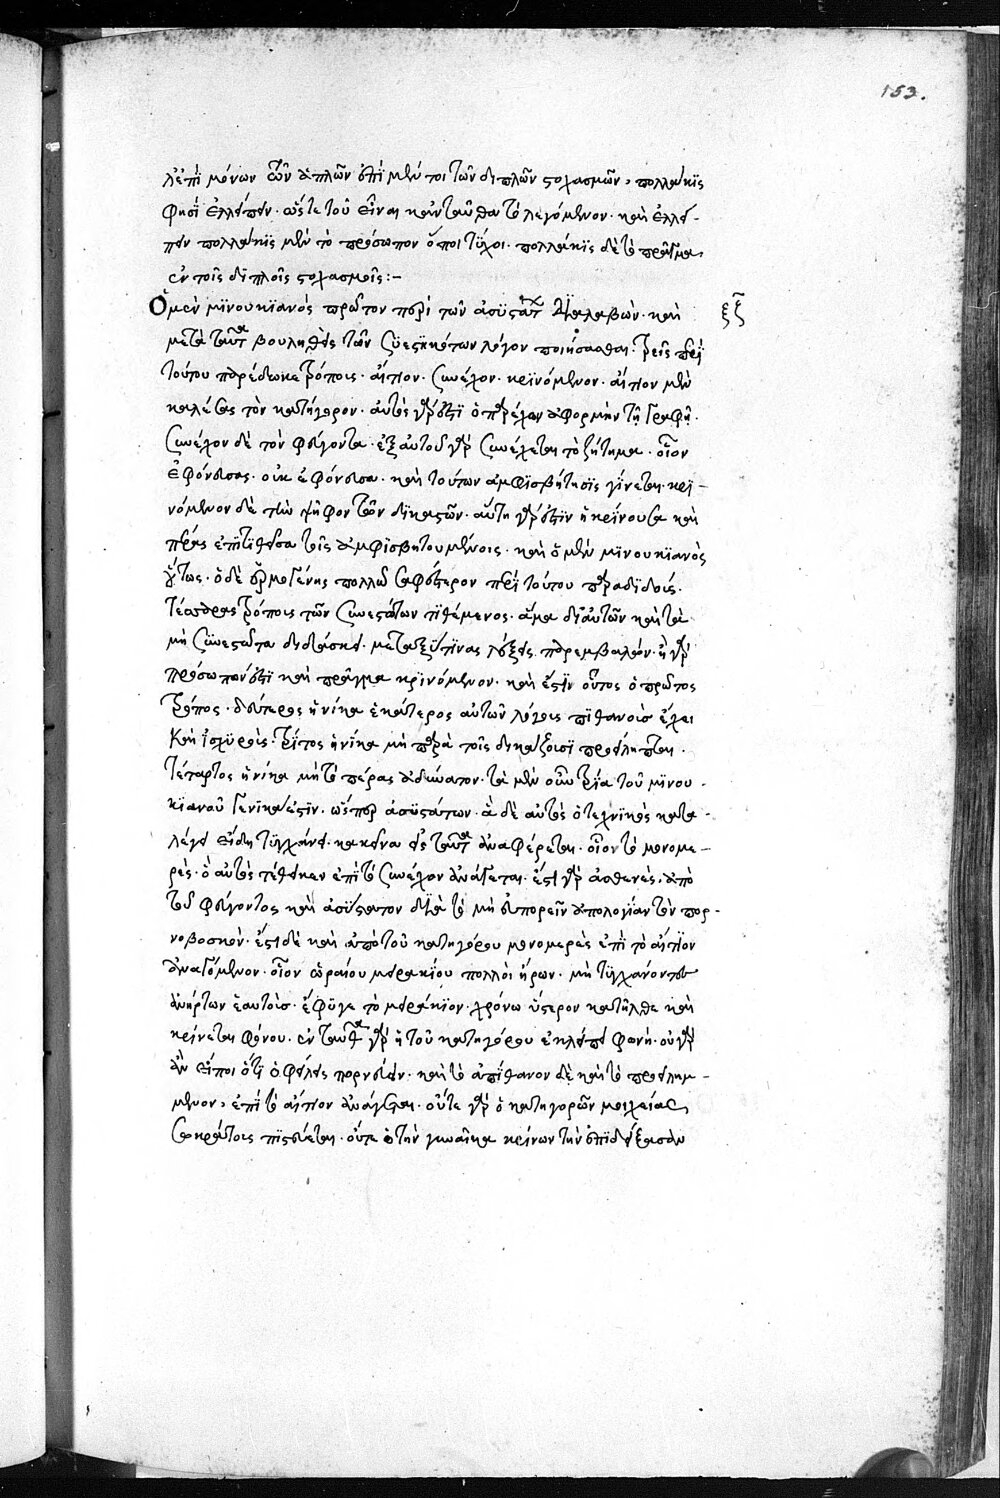 153.
λ' ἐπὶ μόνων τῶν ἁπλῶν ἐπὶ μέν τοι τῶν διπλῶν στοχασμῶν, πολλάκις
φησὶ ἐλλείπειν· ὥστε τοῦ εἶναι κἀνταῦθα τὸ λεγόμενον· καὶ ἐλλεί-
πειν πολλάκις μὲν τὸ πρόσωπον ὅποι τύχοι· πολλάκις δὲ τὸ πρᾶγμα,
ἐν τοῖς διπλοῖς στοχασμοῖς:-
Ὁ μὲν μινουκιανός πρῶτον περὶ τῶν ἀσυστάτ διαλαβὼν· καὶ
μετὰ ταῦτα βουληθεὶς τῶν συνεστηκότων λόγον ποιήσασθαι· τρεῖς περὶ
τούτου παρέδωκε τρόπους· αἴτιον· συνέχον· κρινόμενον· αἴτιον μὲν
καλέσας τὸν κατήγορον· αὐτὸς γάρ ἐστι ὁ παρέχων ἀφορμὴν τῇ γραφῇ·
συνέχον δὲ τὸν φεύγοντα· ἐξ αὐτοῦ γὰρ συνέχεται τὸ ζήτημα· οἷον
ἐφόνευσας· οὐκ ἐφόνευσα· καὶ τούτων ἀμφισβήτησις γίνεται· κρι-
νόμενον δὲ τὴν ψῆφον τῶν δικαστῶν· αὕτη γάρ ἐστιν ἡ κρίνουσα καὶ
πέρας ἐπιτιθεῖσα τοῖς ἀμφισβητουμένοις· καὶ ὁ μὲν μινουκιανὸς
οὕτως· ὁ δὲ ἑρμογένης πολλῷ σαφέστερον περὶ τούτου παραδιδούς·
τέσσαρας τρόπους τῶν συνεστώτων τιθέμενος· ἅμα δι' αὐτῶν καὶ τὰ
μὴ συνεστῶτα διδάσκει· μεταξύ τινας λέξεις παρεμβαλών· ἢ γὰρ
πρόσωπόν ἐστι καὶ πρᾶγμα κρινόμενον· καὶ ἔστιν οὗτος ὁ πρῶτος
τρόπος· δεύτερος ἡνίκα ἑκάτερος αὐτῶν λόγοις πιθανοῖς ἔχει
καὶ ἰσχυροῖς· τρίτος ἡνίκα μὴ παρὰ τοῖς δικάζουσι προείληπται·
τέταρτος ἡνίκα μὴ τὸ πέρας ἀδύνατον· τὰ μὲν οὖν τρία τοῦ μινου-
κιανοῦ γενικά ἐστιν· ὥσπερ ἀσυστάτων· ἃ δὲ αὐτὸς ὁ τεχνικὸς κατα-
λέγει εἴδη τυγχάνει· κἀκεῖνα εἰς ταῦτα ἀναφέρεται· οἷον τὸ μονομε-
ρὲς· ὃ αὐτὸς τέθεικεν ἐπὶ τὸ συνέχον ἀνάγεται· ἔστι γὰρ ἀσθενὲς, ἀπὸ
τοῦ φεύγοντος καὶ ἀσύστατον διὰ τὸ μὴ εὐπορεῖν ἀπολογίαν τὸν πορ-
νοβοσκὸν· ἔστι δὲ καὶ ἀπὸ τοῦ κατηγόρου μονομερὲς ἐπὶ τὸ αἴτιον
ἀναγόμενον· οἷον ὡραίου μειρακίου πολλοὶ ἤρων· μὴ τυγχάνοντες
ἀνήρτων ἑαυτοὺς· ἔφυγε τὸ μειράκιον· χρόνῳ ὕστερον κατῆλθε καὶ
κρίνεται φόνου· ἐνταῦθα γὰρ ἡ τοῦ κατηγόρου ἐκλείπει φωνή· οὐ γὰρ
ἂν εἴποι ὅτι ὤφειλες πορνεύειν· καὶ τὸ ἀπίθανον δὲ καὶ τὸ προειλημ-
μένον, ἐπὶ τὸ αἴτιον ἀνάγεται· οὔτε γὰρ ὁ κατηγορῶν μοιχείας,
σωκράτους πιστεύεται· οὔτε ὁ τὴν γυναῖκα κρίνων τὴν ἐπιδείξασαν
ξξ